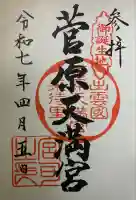 参拝
御誕生地
出雲國
菅原天満宮
令和七年四月五日